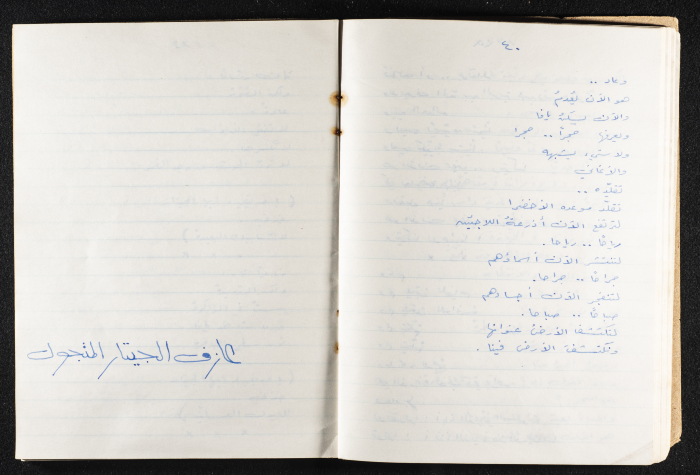 ٤٠
وعاد ..
هو الآن يُعدمُ
والآن يسكنُ يافا
ويعرفها حجراً .. حجرا
ولا شيء يشبهه
والأغاني
تقلّده ..
تقلّد موعده الأخضرا
لترتفع الآن أذرعةُ اللاجئين
رياحًا .. رياحا.
لتنتشر الآن أسماؤهم
جراحًا .. جراحا.
لتنفجر الآن أجسادهم
صباحًا .. صباحا.
لتكتشف الأرضُ عنوانها
ونكتشف الأرض فينا .
عازف الجيتار المتجول